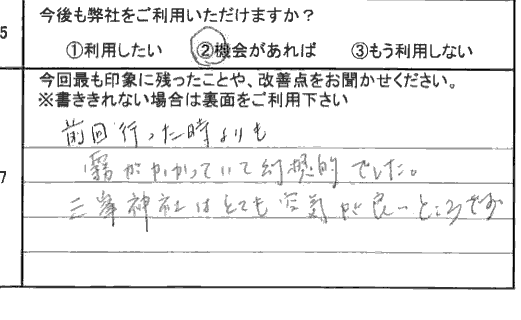 5
今後も弊社をご利用いただけますか？
①利用したい ②機会があれば ③もう利用しない
今回最も印象に残ったことや、改善点をお聞かせください。
※書ききれない場合は裏面をご利用下さい
7
前回行った時よりも
霧がかかっていて幻想的でした。
三峯神社はとても空気が良いところです